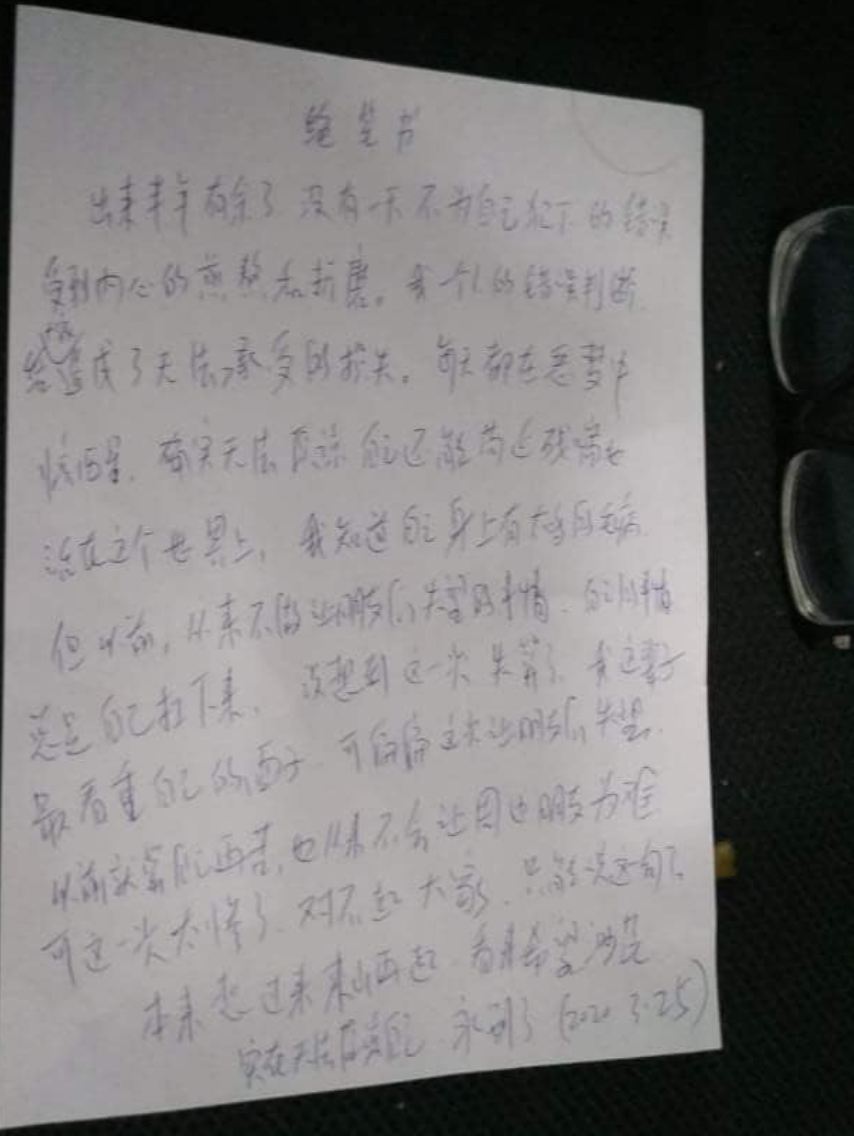 绝笔书
出来半年有余了 没有一天不为自己犯下的错误
受到内心的煎熬和折磨。我个人的错误判断
造成了无法承受的损失。每天都在恶梦中
惊醒。 无法原谅自己还能苟延残喘
活在这个世界上, 我知道自己身上有 毛病
但以前,从来不做让朋友们失望的事情. 自己的事情
总是自己扛下来, 没想到这一次失算了. 我这辈子
最看重自己的面子. 可偏偏这次让朋友们失望.
以前 自己再苦,也从来不会让 朋友为难
可这一次太惨了. 对不起大家. 只能说这句了
本来想过来东山再起. 看来希望渺茫
实在无法原谅自己. 永别了 (2020 3.25)